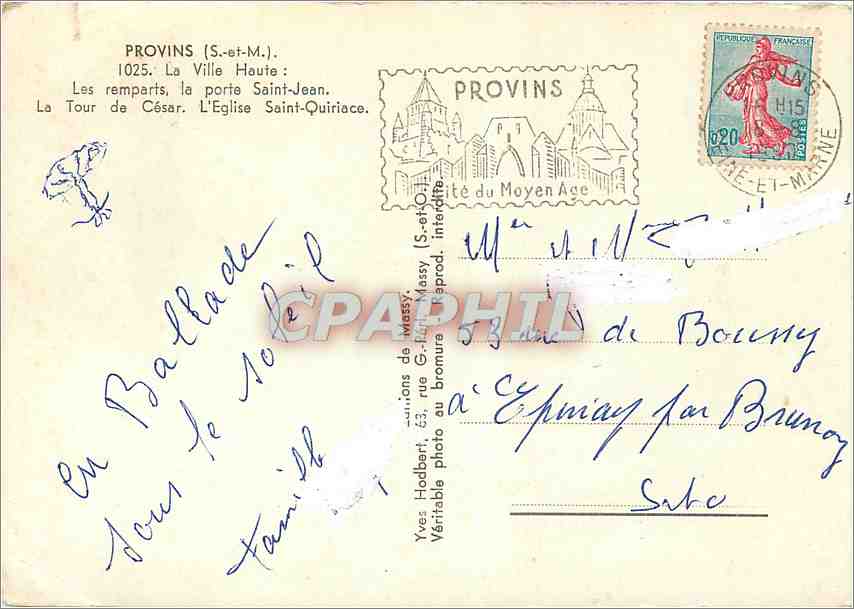 PROVINS (S.-et-M.).
1025. La Ville Haute :
Les remparts, la porte Saint-Jean.
La Tour de César. L'Eglise Saint-Quiriace.
PROVINS
Cité du Moyen Age
REPUBLIQUE FRANÇAISE
0,20
POSTES
PROVINS
H15
SEINE-ET-MARNE
en Ballade
sous le soleil
Famille
Yves Hodbert, 63, rue G.-Péri, Massy (S.-et-O.)
Véritable photo au bromure Reprod. interdite.
Editions de Massy.
CPAPHIL
Mr et Mme
53 rue de Boussy
à Epinay par Brunoy
S et O